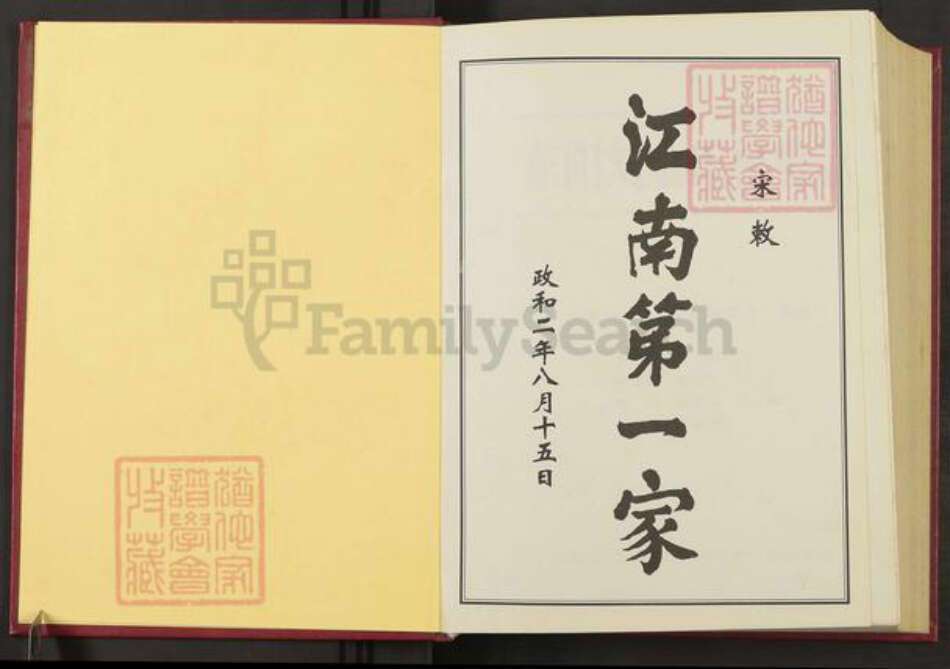 宋敕
江南第一家
政和二年八月十五日
猶他家
譜學會
收藏
猶他家
譜學會
收藏
FamilySearch